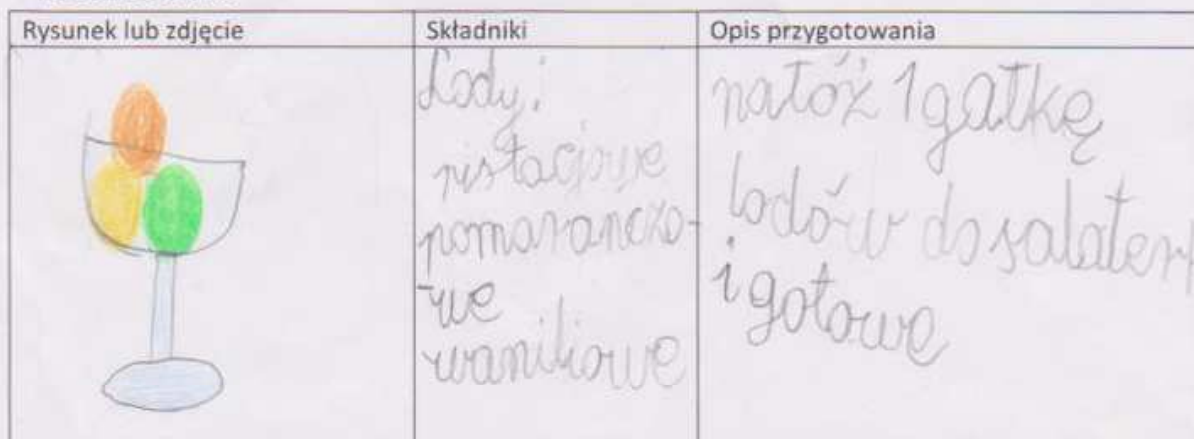 Rysunek lub zdjęcie
Składniki
Opis przygotowania
Lody:
pistacjowe
pomarańczo-
-we
waniliowe
nałóż 1 gałkę
lodów do salater
i gotowe